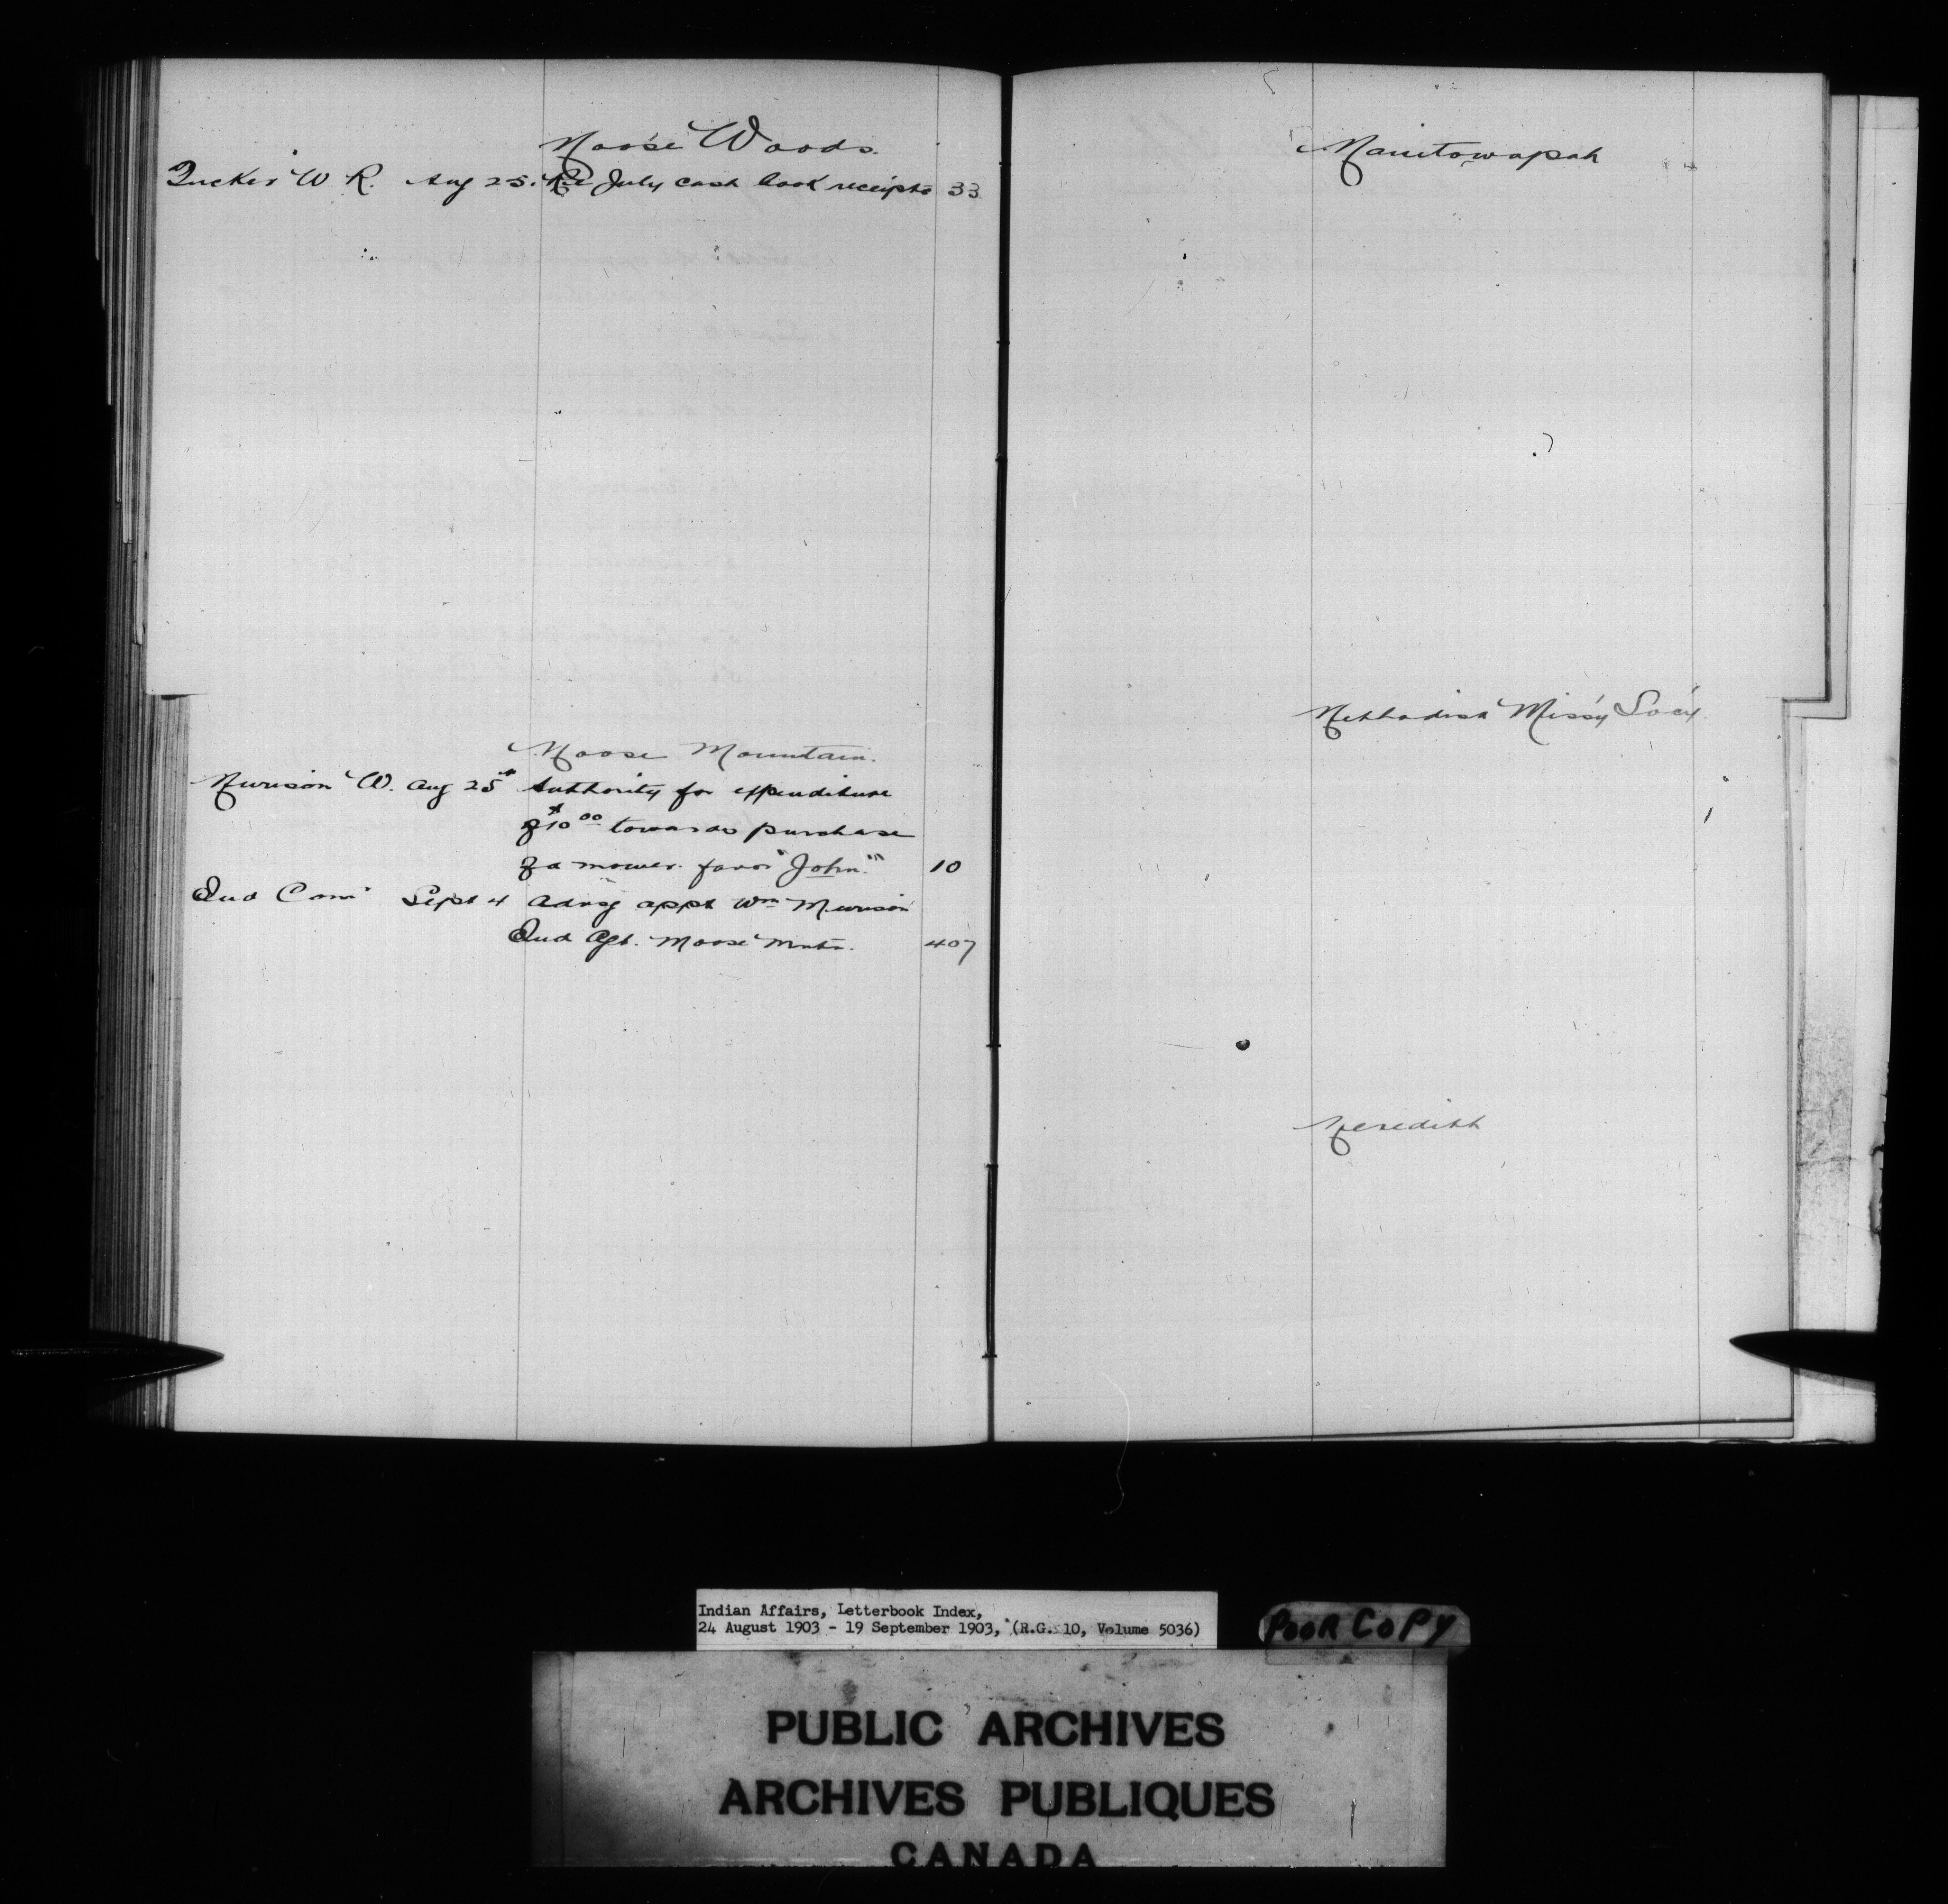 Moose Woods.
Tucker W R. Aug 25. Re July cash book receipts 33
Moose Mountain.
Murison W. Aug 25 Authority for expenditure
of $10 00 towards purchase
of a mower favor "John" 10
Ind Com Sept 4 Advsg appt Wm Murison
Ind Agt. Moose Mntn. 407
Manitowapah
Methodist Miss'y Soc'y
Meredith
Indian Affairs, Letterbook Index,
24 August 1903 - 19 September 1903, (R.G. 10, Volume 5036)
POOR COPY
PUBLIC ARCHIVES
ARCHIVES PUBLIQUES
CANADA